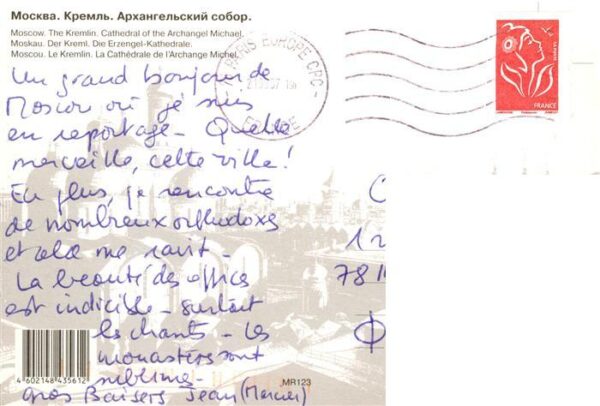 Москва. Кремль. Архангельский собор.
Moscow. The Kremlin. Cathedral of the Archangel Michael.
Moskau. Der Kreml. Die Erzengel-Kathedrale.
Moscou. Le Kremlin. La Cathédrale de l'Archange Michel.
PARIS EUROPE CPC
LA POSTE
FRANCE
Un grand bonjour de
Moscou où je suis
en reportage. Quelle
merveille, cette ville!
En plus, je rencontre
de nombreux orthodoxes
et cela me ravit.
La beauté des offices
est indicible - surtout
les chants - Les
monastères sont
sublimes -
gros Baisers Jean (Mercier)
C
12
781
4 602148 435612
MR123